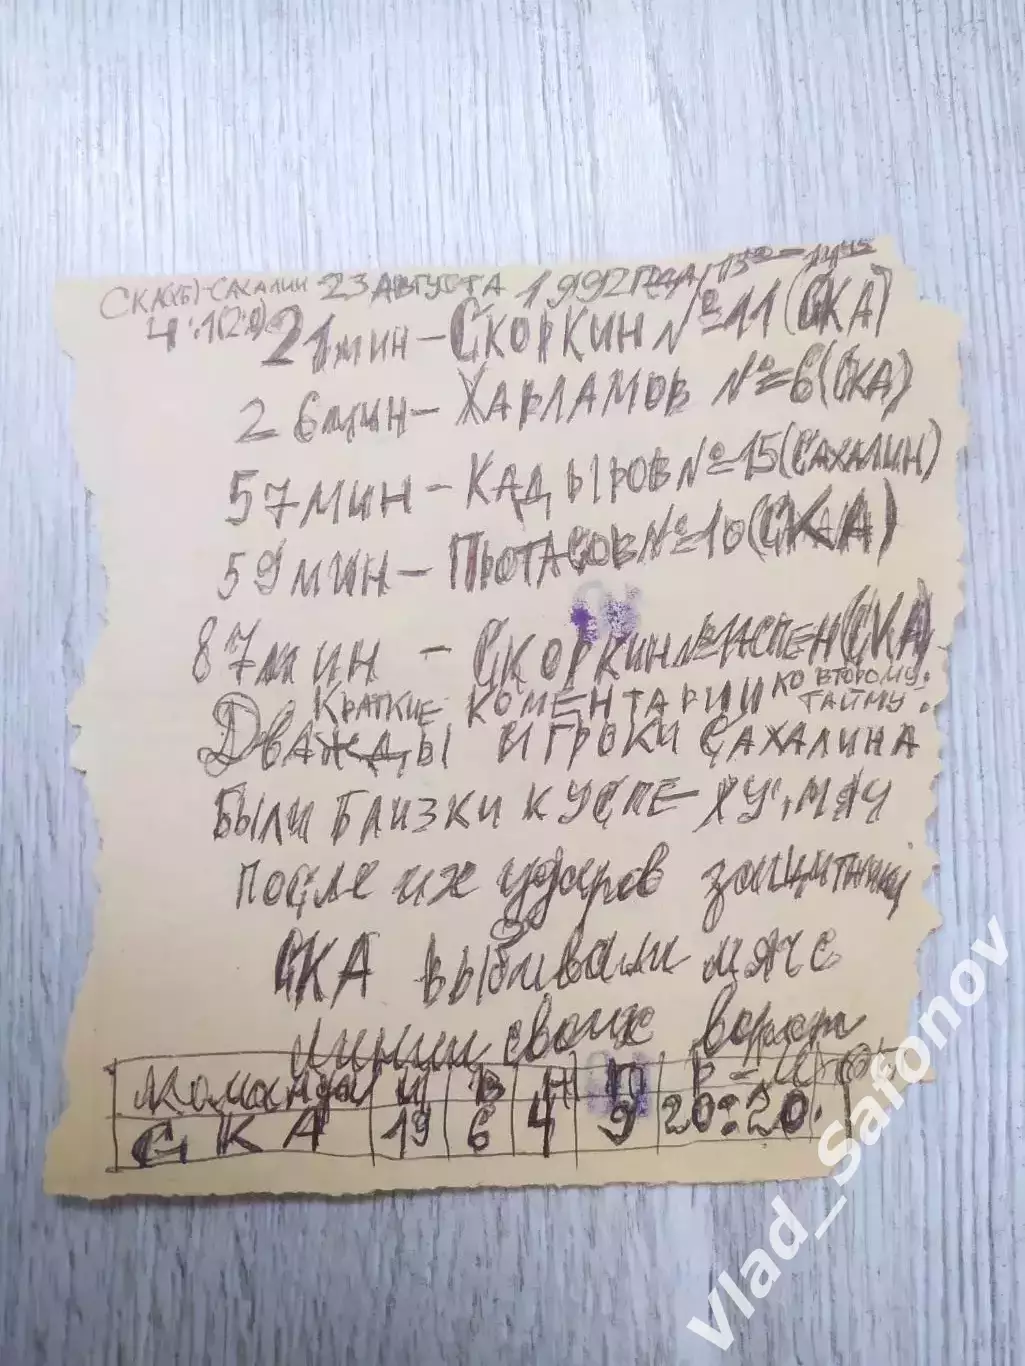 СКА(ХБ)-САХАЛИН 23 АВГУСТА 1992 ГОДА
4:1(2:0)
21 мин - СКОРКИН №11 (СКА)
26 мин - ХАРЛАМОВ №6 (СКА)
57 мин - КАДЫРОВ №15 (САХАЛИН)
59 мин - ПРОТАСОВ №10 (СКА)
87 мин - СКОРКИН №11 СПЕН (СКА)
КРАТКИЕ КОМЕНТАРИИ КО ВТОРОМУ ТАЙМУ:
ДВАЖДЫ ИГРОКИ САХАЛИНА
БЫЛИ БЛИЗКИ К УСПЕХУ, МЯЧ
после их ударов защитники
СКА выбивали мяч с
линии своих ворот
команды И В Н П
СКА 19 6 4 9 20:20
Vlad_Safonov